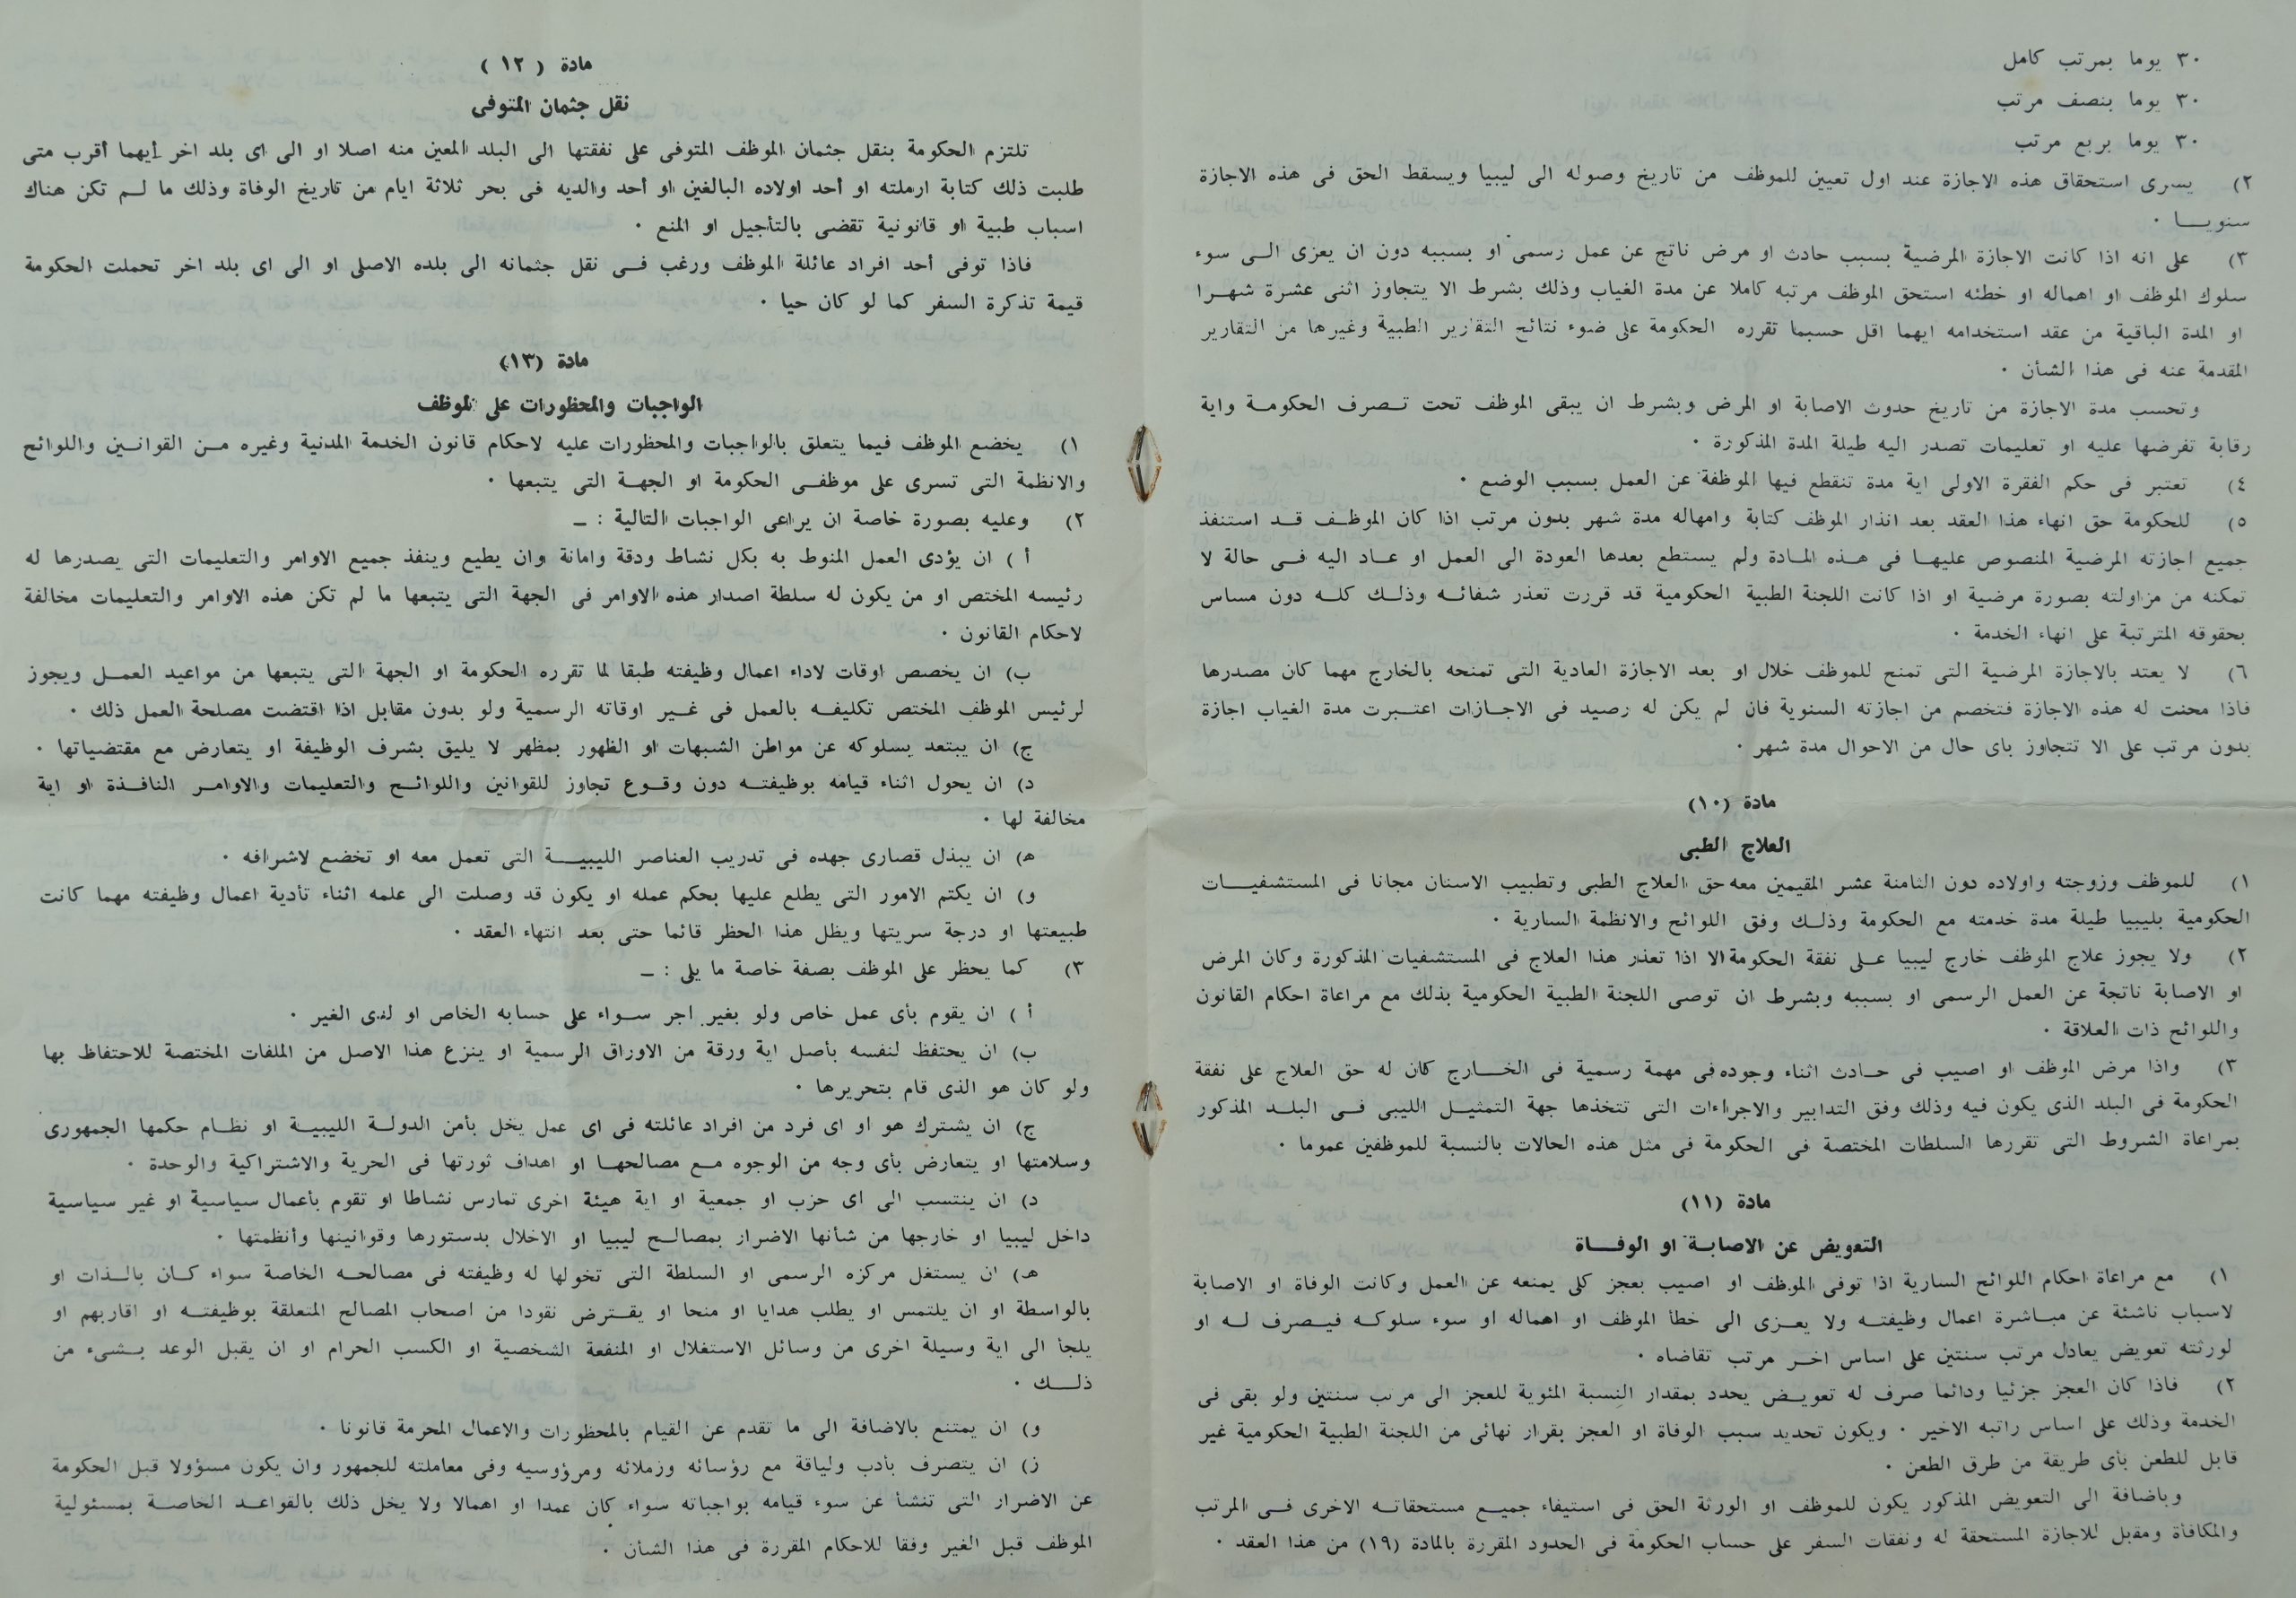 ٣٠ يوما بمرتب كامل
٣٠ يوما بنصف مرتب
٣٠ يوما بربع مرتب
٢) يسرى استحقاق هذه الاجازة عند اول تعيين للموظف من تاريخ وصوله الى ليبيا ويسقط الحق فى هذه الاجازة
سنويـــا .
٣) على انه اذا كانت الاجازة المرضية بسبب حادث او مرض ناتج عن عمل رسمى او بسببه دون ان يعزى الــى سوء
سلوك الموظف او اهماله او خطئه استحق الموظف مرتبه كاملا عن مدة الغياب وذلك بشرط الا يتجاوز اثنى عشرة شهــرا
او المدة الباقية من عقد استخدامه ايهما اقل حسبما تقرره الحكومة على ضوء نتائج التقارير الطبية وغيرها من التقارير
المقدمة عنه فى هذا الشأن .
وتحسب مدة الاجازة من تاريخ حدوث الاصابة او المرض وبشرط ان يبقى الموظف تحت تــصرف الحكومــة واية
رقابة تفرضها عليه او تعليمات تصدر اليه طيلة المدة المذكورة .
٤) تعتبر فى حكم الفقرة الاولى اية مدة تنقطع فيها الموظفة عن العمل بسبب الوضع .
٥) للحكومة حق انهاء هذا العقد بعد انذار الموظف كتابة وامهاله مدة شهر بدون مرتب اذا كان الموظــف قــد استنفذ
جميع اجازته المرضية المنصوص عليهــا فى هــذه المــادة ولم يستطع بعدها العودة الى العمل او عــاد اليه فــى حالة لا
تمكنه من مزاولته بصورة مرضية او اذا كانت اللجنة الطبية الحكومية قد قررت تعذر شفائــه وذلــك كلــه دون مساس
بحقوقه المترتبة على انهاء الخدمة .
٦) لا يعتد بالاجازة المرضية التى تمنح للموظف خلال او بعد الاجازة العادية التى تمنحه بالخارج مهما كان مصدرها
فاذا محنت له هذه الاجازة فتخصم من اجازته السنوية فان لم يكن له رصيد فى الاجــازات اعتــبرت مدة الغياب اجازة
بدون مرتب على الا تتجاوز باى حال من الاحوال مدة شهر .
مادة (١٠)
العلاج الطبى
١) للموظف وزوجته واولاده دون الثامنة عشر المقيمين معه حق العلاج الطبى وتطبيب الاسنان مجانا فى المستشفيـــات
الحكومية بليبيا طيلة مدة خدمته مع الحكومة وذلــك وفق اللوائح والانظمة السارية .
٢) ولا يجوز علاج الموظف خارج ليبيا عــلى نفقة الحكومة الا اذا تعذر هذا العلاج فى المستشفيات المذكورة وكان المرض
او الاصابة ناتجة عن العمل الرسمى او بسببه وبشرط ان توصى اللجنة الطبية الحكومية بذلك مع مراعاة احكام القانون
واللوائح ذات العلاقة .
٣) واذا مرض الموظف او اصيب فى حــادث اثناء وجوده فى مهمة رسمية فى الخــارج كان له حق العلاج على نفقة
الحكومة فى البلد الذى يكون فيه وذلك وفق التدابير والاجراءات التى تتخذها جهة التمثيــل الليبى فــى البلــد المذكور
بمراعاة الشروط التى تقررها السلطات المختصة فى الحكومة فى مثل هذه الحالات بالنسبة للموظفين عموما .
مادة (١١)
التعويض عن الاصابــة او الوفــاة
١) مع مراعاة احكام اللوائح السارية اذا توفى الموظف او اصيب بعجز كلى يمنعه عن العمل وكانت الوفاة او الاصابة
لاسباب ناشئة عن مبــاشرة اعمال وظيفتــه ولا يعــزى الى خطأ الموظف او اهماله او سوء سلوكــه فيــصرف لــه او
لورثته تعويض يعادل مرتب سنتين على اساس اخــر مرتب تقاضاه .
٢) فاذا كان العجز جزئيا ودائما صرف له تعويــض يحدد بمقدار النسبة المئوية للعجز الى مرتب سنتين ولو بقى فى
الخدمة وذلك على اساس راتبه الاخير . ويكون تحديد سبب الوفاة او العجز بقرار نهائى من اللجنة الطبية الحكومية غير
قابل للطعن بأى طريقة من طرق الطعن .
وباضافة الى التعويض المذكور يكون للموظف او الورثة الحق فى استيفاء جميــع مستحقاتــه الاخرى فــى المرتب
والمكافأة ومقبل للاجازة المستحقة له ونفقات السفر على حساب الحكومة فى الحدود المقررة بالمادة (١٩) من هذا العقد .
مادة (١٢)
نقل جثمان المتوفى
تلتزم الحكومة بنقل جثمان الموظف المتوفى على نفقتها الى البلد المعين منه اصلا او الى اى بلد اخر أيهما أقرب متى
طلبت ذلك كتابة ارملته او أحد اولاده البالغين او أحد والديه فى بحر ثلاثة ايام من تاريخ الوفاة وذلك ما لــم تكن هناك
اسباب طبية او قانونية تقضى بالتأجيل او المنع .
فاذا توفى أحد افراد عائلة الموظف ورغب فــى نقل جثمانه الى بلده الاصلى او الى اى بلد اخر تحملت الحكومة
قيمة تذكرة السفر كما لو كان حيا .
مادة (١٣)
الواجبات والمحظورات على الموظف
١) يخضع الموظف فيما يتعلق بالواجبات والمحظورات عليه لاحكام قانون الخدمة المدنية وغيره مــن القوانــين واللوائح
والانظمة التى تسرى على موظفــى الحكومة او الجهــة التى يتبعها .
٢) وعليه بصورة خاصة ان يراعى الواجبات التالية : ــ
أ ) ان يؤدى العمل المنوط به بكل نشاط ودقة وامانة وان يطيع وينفذ جميع الاوامر والتعليمات التى يصدرها له
رئيسه المختص او من يكون له سلطة اصدار هذه الاوامر فى الجهة التى يتبعها ما لم تكن هذه الاوامر والتعليمات مخالفة
لاحكام القانون .
ب) ان يخصص اوقات لاداء اعمال وظيفته طبقا لما تقرره الحكومة او الجهة التى يتبعها من مواعيد العمــل ويجوز
لرئيس الموظف المختص تكليفــه بالعمل فى غــير اوقاته الرسمية ولو بدون مقابل اذا اقتضت مصلحة العمل ذلك .
ج) ان يبتعد بسلوكه عن مواطن الشبهات او الظهور بمظهر لا يليق بشرف الوظيفة او يتعارض مع مقتضياتها .
د) ان يحول اثناء قيامه بوظيفتــه دون وقــوع تجاوز للقوانين واللوائــح والتعليمات والاوامــر النافــذة او اية
مخالفة لها .
ه) ان يبذل قصارى جهده فى تدريب العناصر الليبيـــة التى تعمل معه او تخضع لاشرافه .
و) ان يكتم الامور التى يطلع عليها بحكم عمله او يكون قد وصلت الى علمه اثناء تأدية اعمال وظيفته مهما كانت
طبيعتها او درجة سريتها ويظل هذا الحظر قائما حتى بعد انتهاء العقد .
٣) كما يحظر على الموظف بصفة خاصة ما يلى : ــ
أ ) ان يقوم بأى عمل خاص ولو بغير اجر ســواء على حسابه الخاص او لدى الغير .
ب) ان يحتفظ لنفسه بأصل اية ورقة من الاوراق الرسمية او ينزع هذا الاصل من الملفات المختصة للاحتفاظ بها
ولو كان هو الذى قام بتحريرها .
ج) ان يشترك هو او اى فرد من افراد عائلته فى اى عمل يخل بأمن الدولــة الليبيــة او نظــام حكمها الجمهورى
وسلامتها او يتعارض بأى وجه من الوجوه مــع مصالحهــا او اهداف ثورتها فى الحرية والاشتراكية والوحدة .
د) ان ينتسب الى اى حزب او جمعية او اية هيئة اخرى تمارس نشاطا او تقوم بأعمال سياسية او غير سياسية
داخل ليبيا او خارجها من شأنها الاضرار بمصالــح ليبيا او الاخلال بدستورها وقوانينها وأنظمتها .
هـ) ان يستغل مركزه الرسمى او السلطة التى تخولها له وظيفته فى مصالحــه الخاصة سواء كــان بالــذات او
بالواسطة او ان يلتمس او يطلب هدايا او منحا او يقــترض نقودا من اصحاب المصالح المتعلقة بوظيفتــه او اقاربهم او
يلجأ الى اية وسيلة اخرى من وسائل الاستغلال او المنفعة الشخصية او الكسب الحرام او ان يقبل الوعد بــشىء من
ذلــــك .
و) ان يمتنع بالاضافة الى ما تقدم عن القيام بالمحظورات والاعمال المحرمة قانونا .
ز) ان يتصرف بأدب ولياقة مع رؤسائه وزملائه ومرؤوسيه وفى معاملته للجمهور وان يكون مسؤولا قبل الحكومة
عن الاضرار التى تنشأ عن سوء قيامه بواجباته سواء كان عمدا او اهمالا ولا يخل ذلك بالقواعــد الخاصــة بمسئولية
الموظف قبل الغير وفقا للاحكام المقررة فى هذا الشأن .